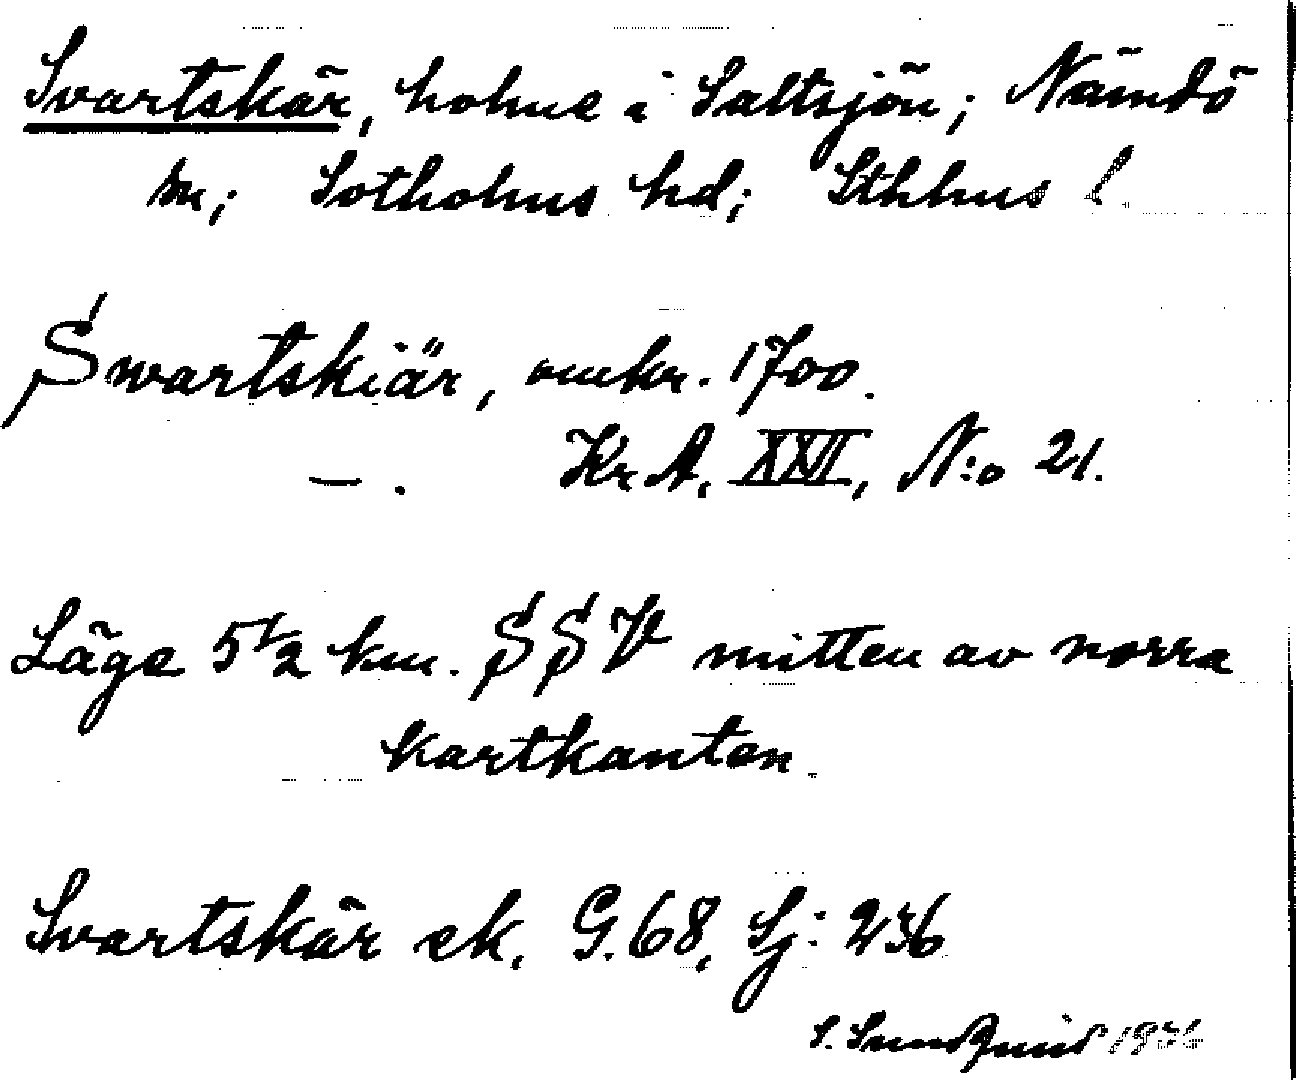 Svartskär, holme i Saltsjön; Nämdö
sn; Sotholms hd; Sthlms l.
Swartskiär, omkr. 1700.
—. Kr A. XXII, N:o 21.
Läge 5 1/2 km. SSV mitten av norra
kartkanten.
Svartskär ek. G. 68, Sj: 236
S. Sundquist